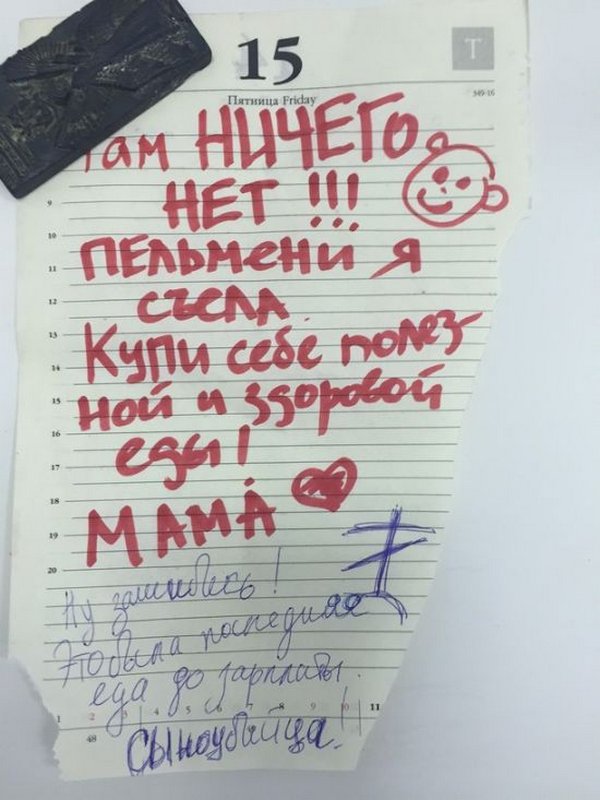 15
T
Пятница Friday
349-16
Там НИЧЕГО
НЕТ !!!
9
10
ПЕЛЬМЕНИ Я
11
СЪЕЛА
12
Купи себе полез-
13
14
ной и здоровой
15
16
еды!
17
18
МАМА
19
20
Ну зашибись!
Это была последняя
еда до зарплаты.
1 2 3 4 5 6 7 8 9 10 11
48
СЫНоубийца!